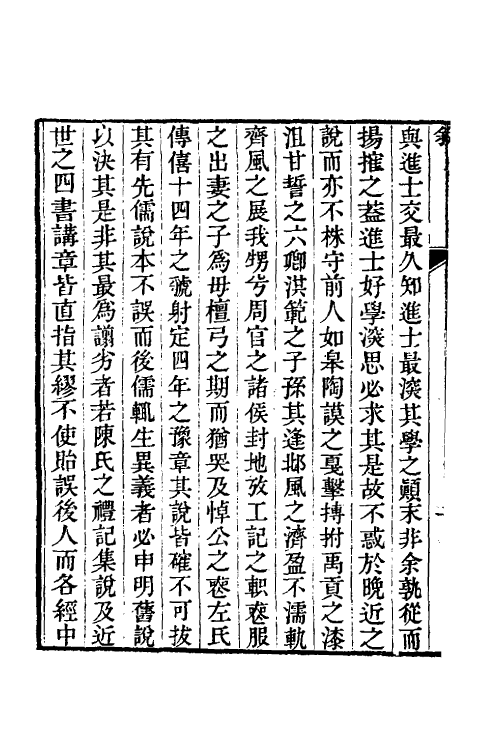 與進士交最久知進士最深其學之顛末非余孰從而
揚搉之葢進士好學深思必求其是故不惑於晚近之
說而亦不株守前人如皋陶謨之戛擊搏拊禹貢之漆
沮甘誓之六卿洪範之子孫其逢邶風之濟盈不濡軌
齊風之展我甥兮周官之諸侯封地攷工記之軹喪服
之出妻之子爲毋檀弓之期而猶哭及悼公之喪左氏
傳僖十四年之虢射定四年之豫章其說皆確不可拔
其有先儒說本不誤而後儒輒生異義者必申明舊說
以決其是非其最爲譾劣者若陳氏之禮記集說及近
世之四書講章皆直指其繆不使貽誤後人而各經中